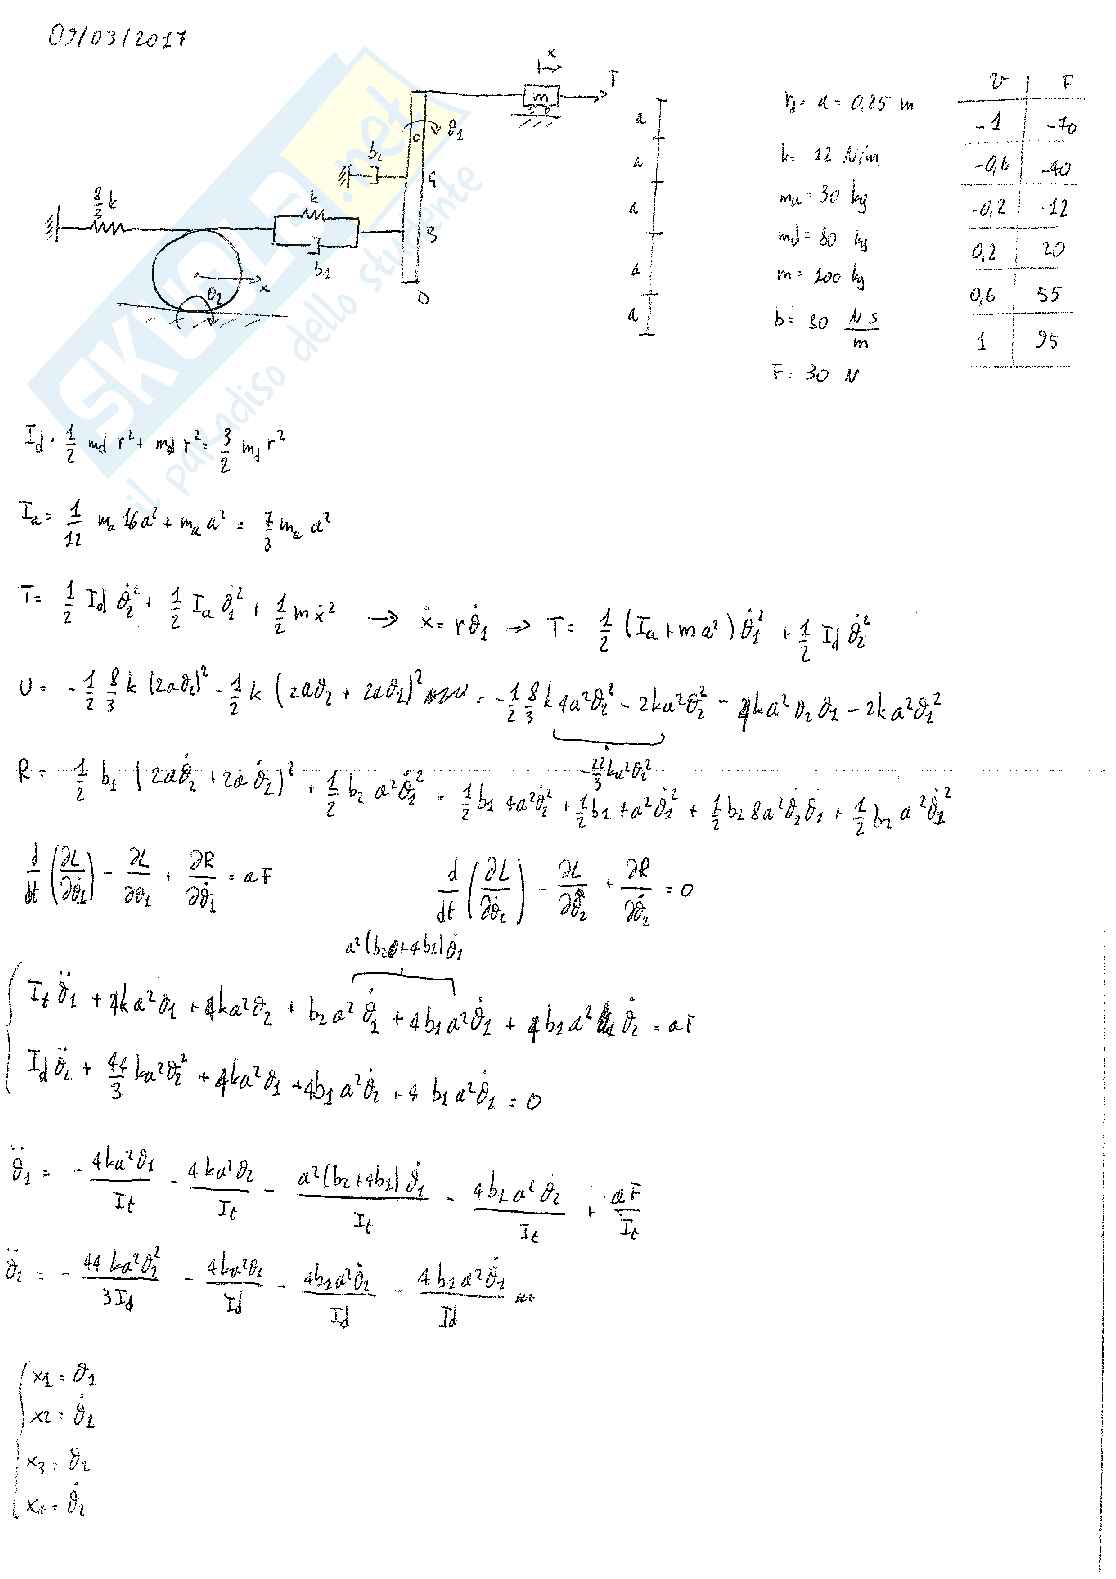 09/03/2017
x
T
m
a
ϑ1
C
b2
G
8/3 k
k
B
b1
x
ϑ2
D
a
a
a
a
rd = a = 0,25 m
k = 12 N/m
ma = 30 kg
md = 80 kg
m = 100 kg
b = 30 N s/m
F = 30 N
v | F
-1 | -70
-0,6 | -40
-0,2 | -12
0,2 | 20
0,6 | 55
1 | 95
SKUOLA.net
il paradiso dello studente
Id = 1/2 md r² + md r² = 3/2 md r²
Ia = 1/12 ma 16a² + ma a² = 7/3 ma a²
T = 1/2 Id ϑ̇2² + 1/2 Ia ϑ̇1² + 1/2 m ẋ² → ẋ = r ϑ̇1 → T = 1/2 (Ia + ma²) ϑ̇1² + 1/2 Id ϑ̇2²
U = -1/2 8/3 k (2aϑ2)² - 1/2 k (2aϑ2 + 2aϑ1)² = -1/2 8/3 k 4a²ϑ2² - 2ka²ϑ2² - 4ka²ϑ2ϑ1 - 2ka²ϑ1²
-22/3 ka²ϑ2²
R = 1/2 b1 (2aϑ̇2 + 2aϑ̇1)² + 1/2 b2 a²ϑ̇1² = 1/2 b1 4a²ϑ̇2² + 1/2 b1 4a²ϑ̇1² + 1/2 b1 8a²ϑ̇2ϑ̇1 + 1/2 b2 a²ϑ̇1²
d/dt (∂L/∂ϑ̇1) - ∂L/∂ϑ1 + ∂R/∂ϑ̇1 = aF
d/dt (∂L/∂ϑ̇2) - ∂L/∂ϑ2 + ∂R/∂ϑ̇2 = 0
a²(b2 + 4b1)ϑ̇1
It ϑ̈1 + 4ka²ϑ1 + 4ka²ϑ2 + b2a²ϑ̇1 + 4b1a²ϑ̇1 + 4b1a²ϑ̇2 = aF
Id ϑ̈2 + 44/3 ka²ϑ2² + 4ka²ϑ1 + 4b1a²ϑ̇2 + 4b1a²ϑ̇1 = 0
ϑ̈1 = - 4ka²ϑ1/It - 4ka²ϑ2/It - a²(b2+4b1)ϑ̇1/It - 4b1a²ϑ̇2/It + aF/It
ϑ̈2 = - 44ka²ϑ2²/3Id - 4ka²ϑ2/Id - 4b1a²ϑ̇2/Id - 4b1a²ϑ̇1/Id
x1 = ϑ1
x2 = ϑ̇1
x3 = ϑ2
x4 = ϑ̇2